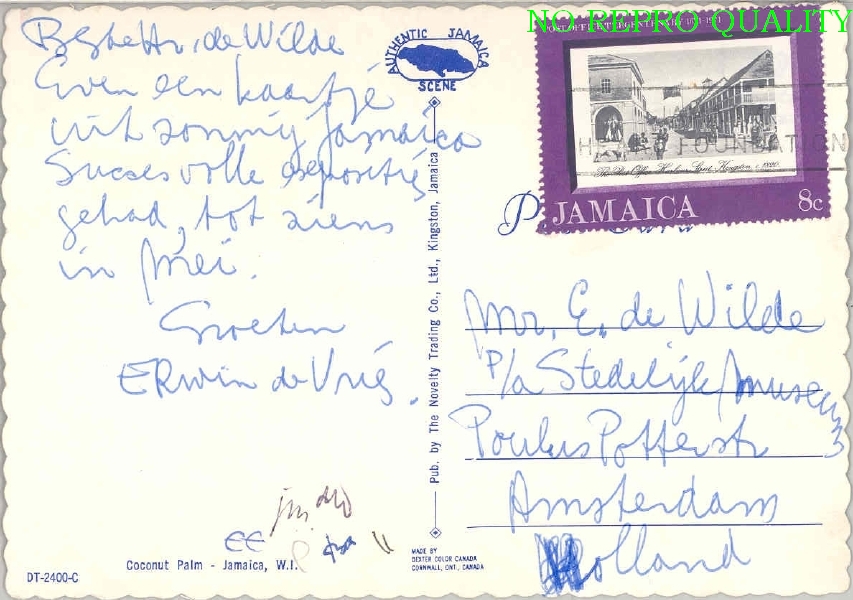 NO REPRO QUALITY
Beste Hr. de Wilde
Even een kaartje
uit zonnig Jamaica
Succesvolle expositie
gehad, tot ziens
in mei.
Groeten
Erwin de Vries.
AUTHENTIC JAMAICA
SCENE
Pub. by The Novelty Trading Co., Ltd., Kingston, Jamaica
POST OFFICE TERCENTENARY 1671-1971
The Post Office Harbour Street Kingston, c. 1820
FOUNDATION
JAMAICA 8c
Mr. E. de Wilde
P/a Stedelijk Museum
Paulus Potterstr
3
Amsterdam
Holland
EE
DT-2400-C
Coconut Palm - Jamaica, W.I.
MADE BY
DEXTER COLOR CANADA
CORNWALL, ONT., CANADA